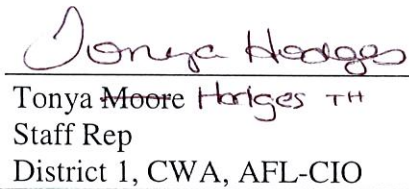 Tonya Hodges
Tonya Moore Hodges TH
Staff Rep
District 1, CWA, AFL-CIO